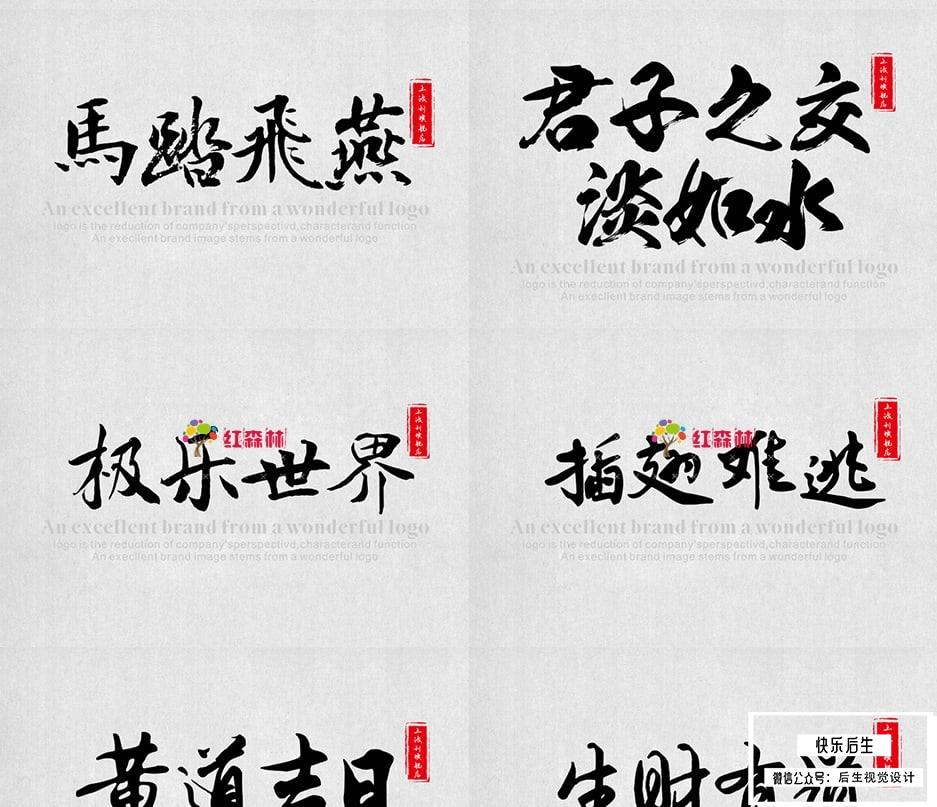 馬踏飛燕
An excellent brand from a wonderful logo
logo is the reduction of company'sperspectivd,characterand function
An execllent brand image stems from a wonderful logo
君子之交
淡如水
An excellent brand from a wonderful logo
logo is the reduction of company'sperspectivd,characterand function
An execllent brand image stems from a wonderful logo
极乐世界
红森林
An excellent brand from a wonderful logo
logo is the reduction of company'sperspectivd,characterand function
An execllent brand image stems from a wonderful logo
插翅难逃
红森林
An excellent brand from a wonderful logo
logo is the reduction of company'sperspectivd,characterand function
An execllent brand image stems from a wonderful logo
黄道吉日
生财有道
快乐后生
微信公众号：后生视觉设计